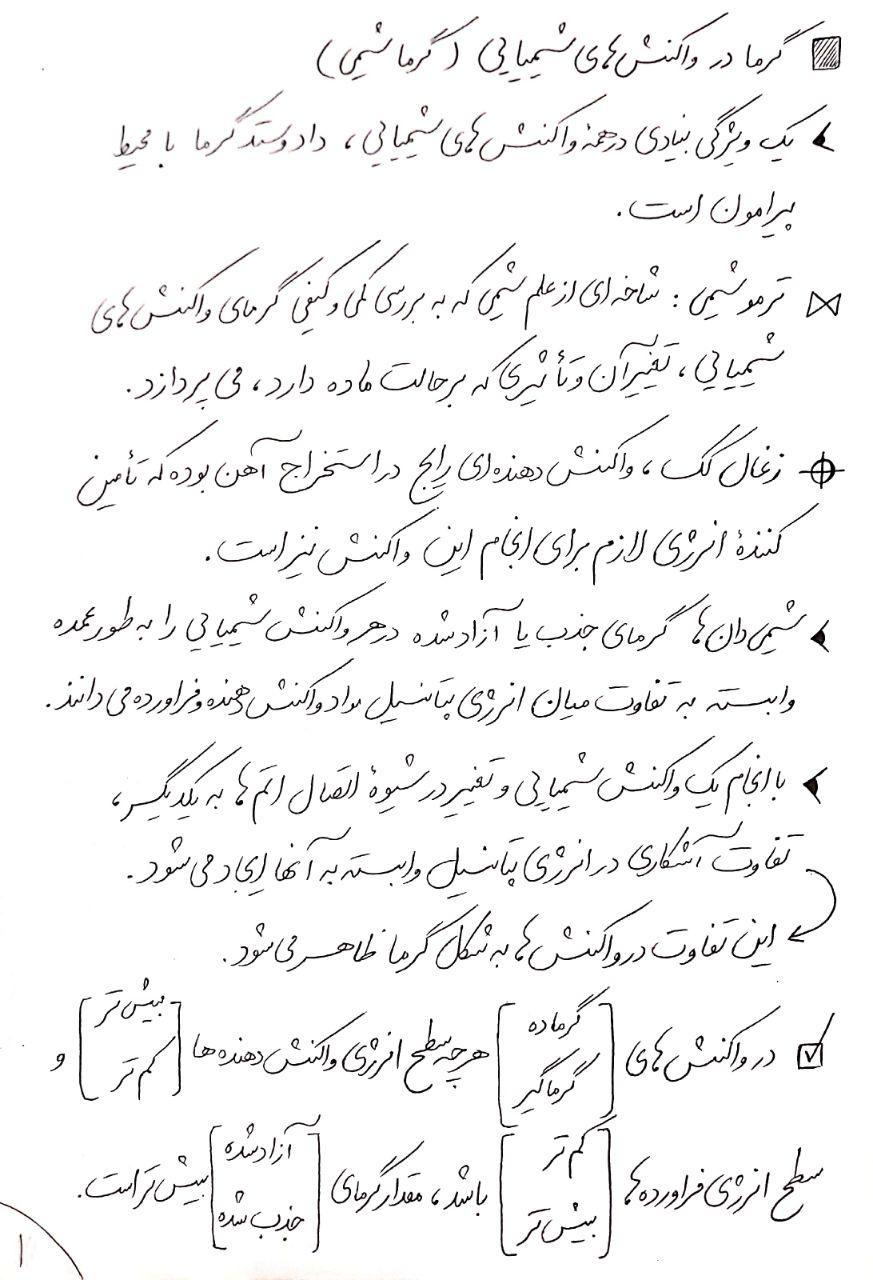 گرما در واکنش های شیمیایی (گرماشیمی)
یک ویژگی بنیادی در همهٔ واکنش های شیمیایی، داد و ستد گرما با محیط
پیرامون است.
ترموشیمی: شاخه ای از علم شیمی که به بررسی کمی و کیفی گرمای واکنش های
شیمیایی، تغییر آن و تأثیری که بر حالت ماده دارد، می پردازد.
زغال کک، واکنش دهنده ای رایج در استخراج آهن بوده که تأمین
کنندهٔ انرژی لازم برای انجام این واکنش نیز است.
شیمی دان ها گرمای جذب یا آزاد شده در هر واکنش شیمیایی را به طور عمده
وابسته به تفاوت میان انرژی پتانسیل مواد واکنش دهنده و فراورده می دانند.
با انجام یک واکنش شیمیایی و تغییر در شیوهٔ اتصال اتم ها به یکدیگر،
تفاوت آشکاری در انرژی پتانسیل وابسته به آنها ایجاد می شود.
این تفاوت در واکنش ها به شکل گرما ظاهر می شود.
در واکنش های [گرماده / گرماگیر] هر چه سطح انرژی واکنش دهنده ها [بیش تر / کم تر] و
سطح انرژی فراورده ها [کم تر / بیش تر] باشد، مقدار گرمای [آزاد شده / جذب شده] بیش تر است.
۱